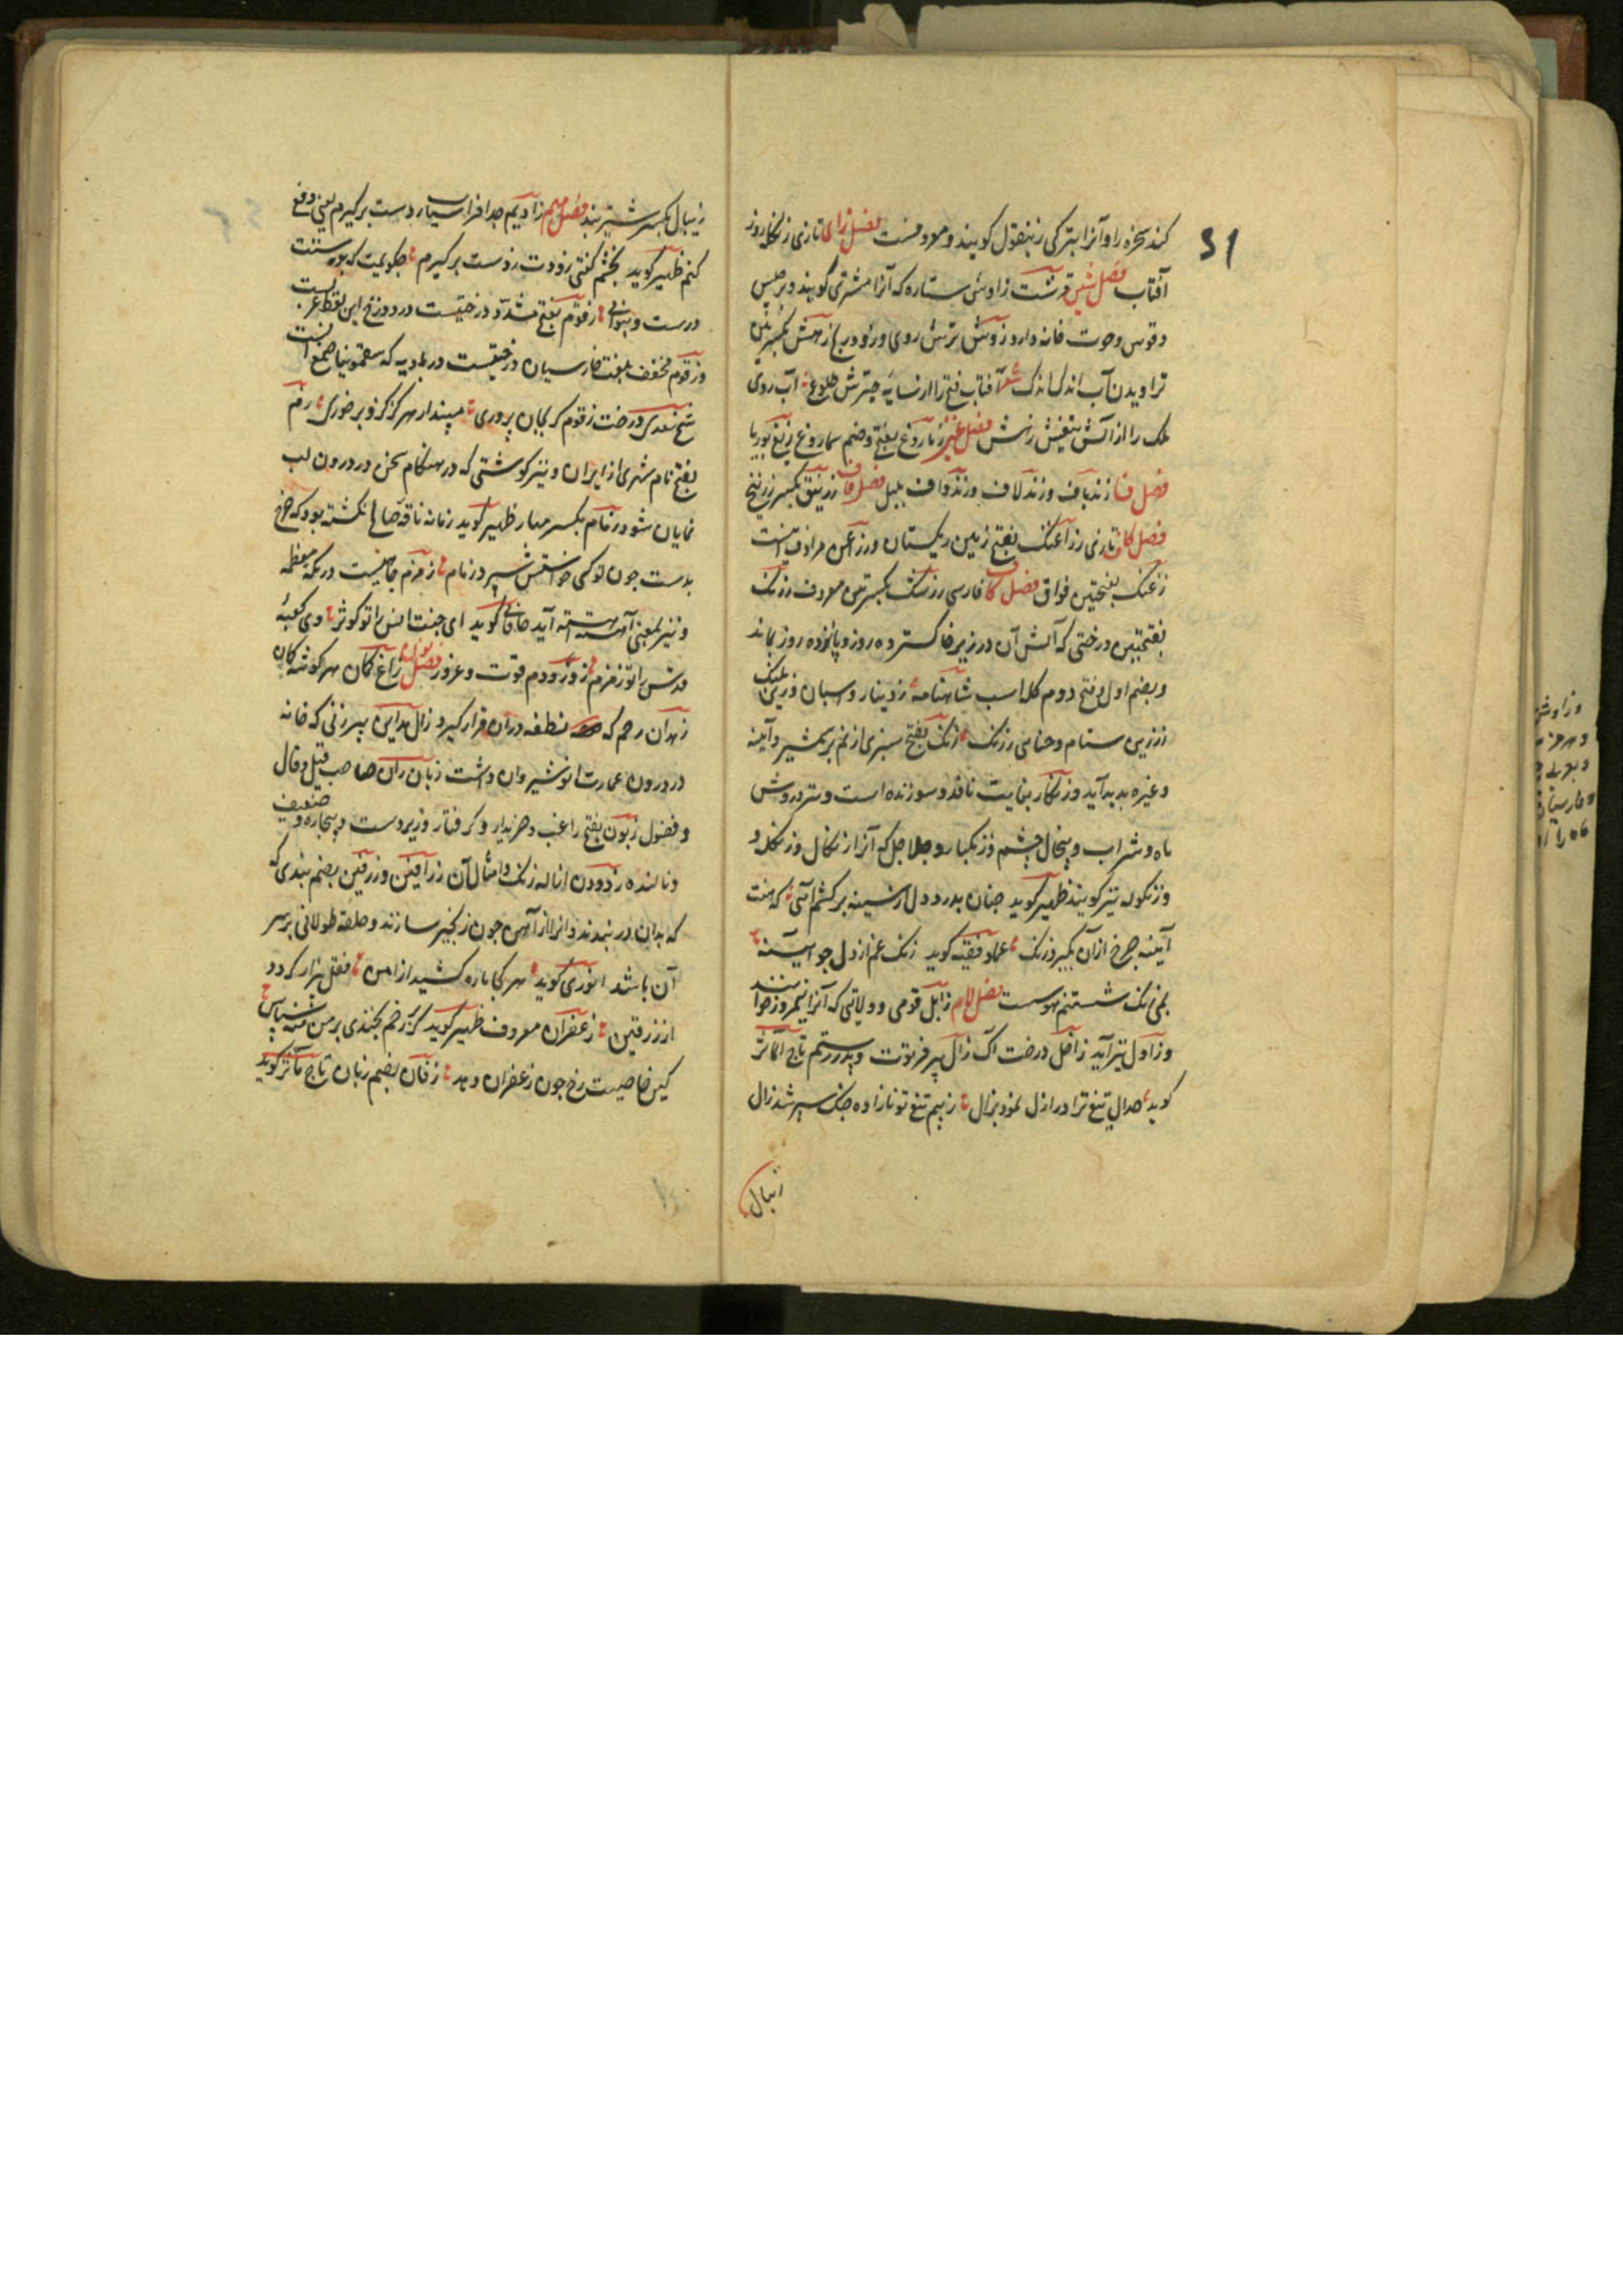 51
کند سخره را و آنرا بترکی زنبقول کویند و معروفست فصل زای تازی زنکله روز
آفتاب فصل شین قرشت زاوش ستاره که آنرا مشتری گویند و برجیس
و قوس و حوت خانه دارد زوش ترش روی و زود رنج زهش بکسرتین
تراویدن آب اندک اندک شعر آفتاب فتح را از سایه چترش طلوع آب روی
ملک را از آتش تیغش زهش فصل غین زماروغ بفتح و ضم سماروغ زیغ بوریا
فصل فا زندباف و زندلاف و زندواف بلبل فصل قاف زرنیق بکسر زرنیخ
فصل کاف تازی زراغنک بفتح زمین ریکستان و زراغن مرادف آنست
زغنک بفتحتین فواق فصل کاف فارسی زرشک بکسرتین معروف زرنک
بفتحتین درختی که آتش آن در زیر خاکستر ده روز و پانزده روز بماند
و بضم اول و فتح دوم کله اسب شاهنامه ز دینار و اسبان زرین پلنک
ز زرین ستام و جناغ زرنک زنک بفتح سبزی از نم بر شمشیر و آینه
و غیره پدید آید و زنکار بغایت نافذ و سوزنده است و سر دروش
ماه و شراب و پیخال چشم و زنکبار و جلاجل که آنرا زنکال و زنکله و
و زنکوله نیز کویند ظهیر کوید چنان بدرد دل از سینه برکشم آهی که هفت
آینه چرخ ازان بگیرد زنک عماد فقیه کوید زنک غم از دل جو آینه
بمی زنک شستنم هوست فصل لام زابل قومی و ولایتی که آنرا نیمروز خوانند
و زاول نیز آید زاقل درخت اک زال پیر فرتوت و پدر رستم تاج المآثر
کوید صدای تیغ ترا در ازل نمود بزال ز بیم تیغ تو نازاده جنک سیر شد زال
زیبال
زیبال بکسر شیر بند فصل میم زاویم جد افراسیاب زدست برکیرم یعنی دفع
کنم ظهیر کوید بخشم کفتی زودت زدست برکیرم چکویمت که بود سنت
درست و بنوای زقوم بفتح مشدد درختیست در دوزخ این لفظ عربیست
و زقوم مخفف بلغت فارسیان درختیست در بادیه که سقمونیا صمغ آنست
شیخ سعدی درخت زقوم ار بجان پروری مپندار هرکز کزو بر خوری زم
بفتح نام شهری از ایران و نیز کوشتی که در هنکام سخن در درون لب
نمایان شود زمام بکسر مهار ظهیر کوید زمانه ناقه صالح نکشته بود که چرخ
بدست چون تو کسی خواستش سپرد زمام زمزم چاهیست در مکه معظمه
و نیز بمعنی آهسته آهسته آید خاقانی کوید ای جنت انس را تو کوثر وی کعبه
قدس را تو زمزم زور و دم قوت و غرور فصل نون زاغ کمان هر کوشه کمان
زهدان رحم که نطفه دران قرار کیرد زال مداین پیر زنی که خانه
در درون عمارت انوشیروان داشت زبان ران صاحب قیل و قال
و فضول زبون بفتح راغب و خریدار و کرفتار و زیردست و بیچاره و ضعیف
و نالنده زدودن ازاله زنک و امثال آن زرافین و زرفین بضم بندی که
که بدان در بندند و آنرا از آهن چون زنجیر سازند و حلقه طولانی بر سر
آن باشد انوری کوید هر کجا باره کشید از امن قفل بیزار کردد
از زرفین زعفران معروف ظهیر کوید کر رخم بخندی بر من منه سپاس
کین خاصیت رخ چون زعفران دهد زفان بضم زبان تاج مآثر کوید